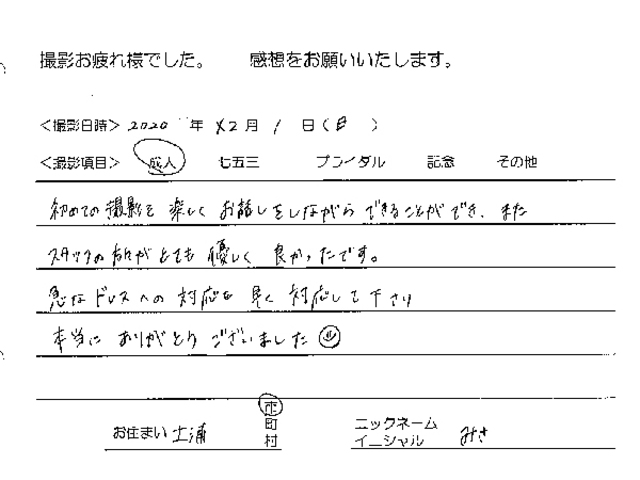 撮影お疲れ様でした。 感想をお願いいたします。
<撮影日時> 2020 年 2月 1 日(日)
<撮影項目> 成人 七五三 ブライダル 記念 その他
初めての撮影を楽しくお話しをしながらできることができ、また
スタッフの方々がとても優しく良かったです。
急なドレスへの対応を早く対応して下さり
本当にありがとうございました
お住まい 土浦 市町村 ニックネームイニシャル みさ